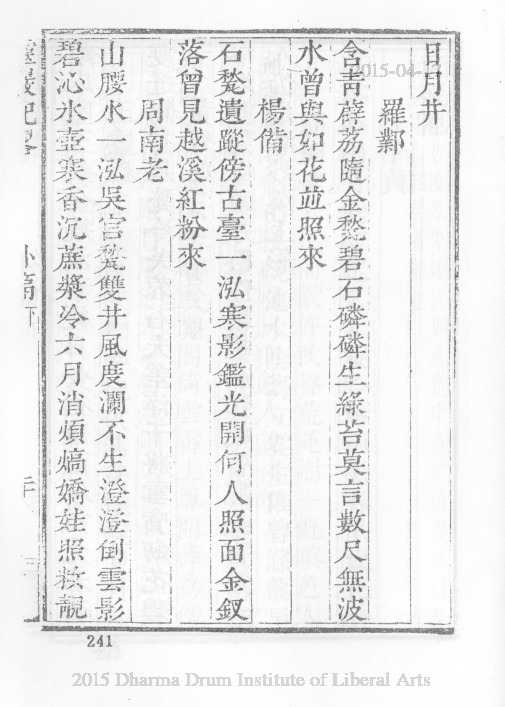 日月井
羅鄴
含青薜荔隨金甃碧石磷磷生綠苔莫言數尺無波
水曾與如花並照來
楊備
石甃遺蹤傍古臺一泓寒影鑑光開何人照面金釵
落曾見越溪紅粉來
周南老
山腰水一泓吳宮甃雙井風度瀾不生澄澄倒雲影
碧沁氷壺寒香沉蔗漿冷六月消煩熇嬌娃照妝靚
外
下
二十
241
2015-04-
2015 Dharma Drum Institute of Liberal Arts